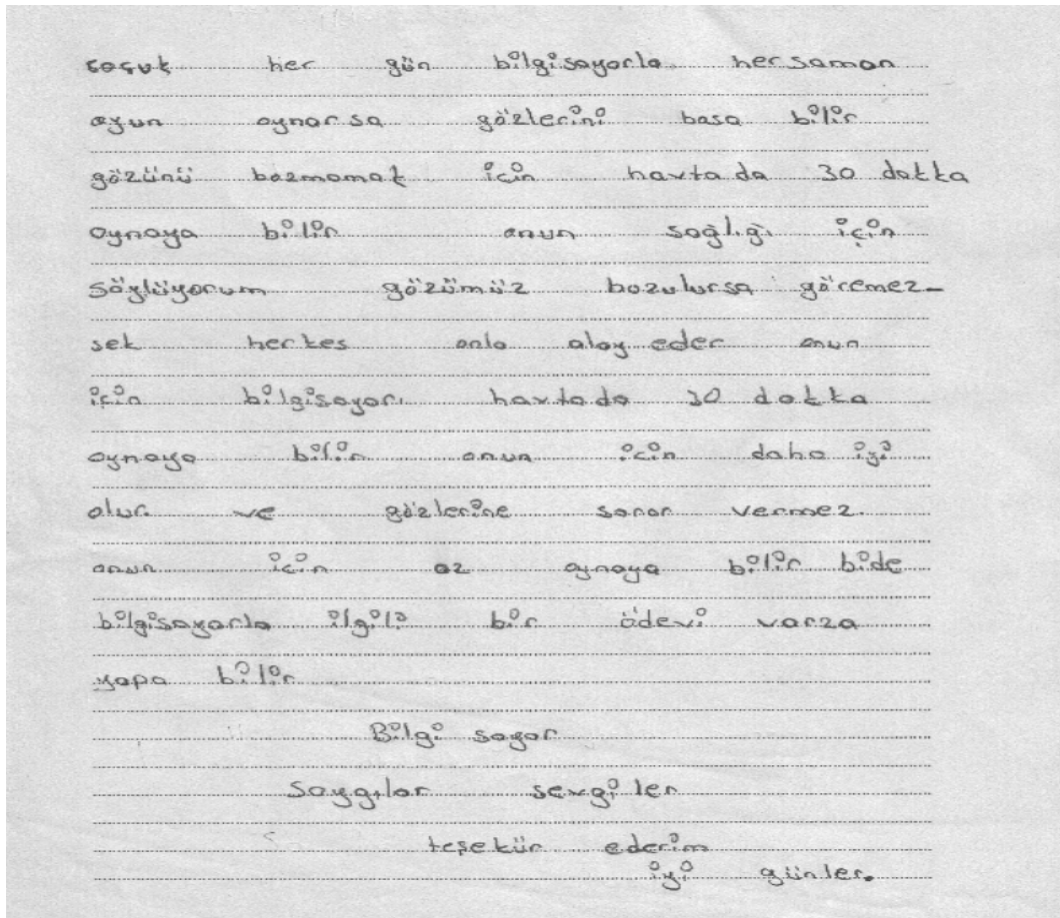 soçuk her gün bilgisayarla hersaman
oyun oynarsa gözlerini basa bilir
gözünü bozmamak için havtada 30 dakka
oynaya bilir onun sağlıgı için
söylüyorum gözümüz bozulursa göremez-
sek herkes onla alay eder onun
için bilgisayarı havtada 30 dakka
oynaya bilir onun icin daha iyi
olur ve gözlerine sarar vermez.
onun icin az oynaya bilir bide
bilgisayarla ilgili bir ödevi varza
yapa bilir
Bilgi sayar
Saygılar sevgiler
teşekür ederim
iyi günler.